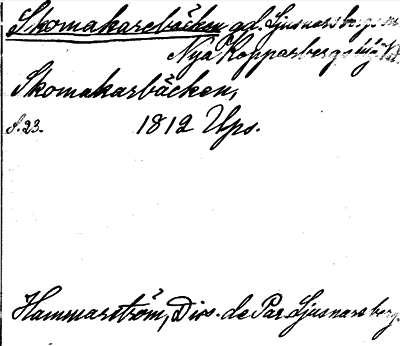 Skomakarebäcken od. Ljusnarsbergs
Nya Kopparbergs
Skomakarbäcken,
s. 23. 1812 Ups.
Hammarström, Diss. de Par. Ljusnarsberg.